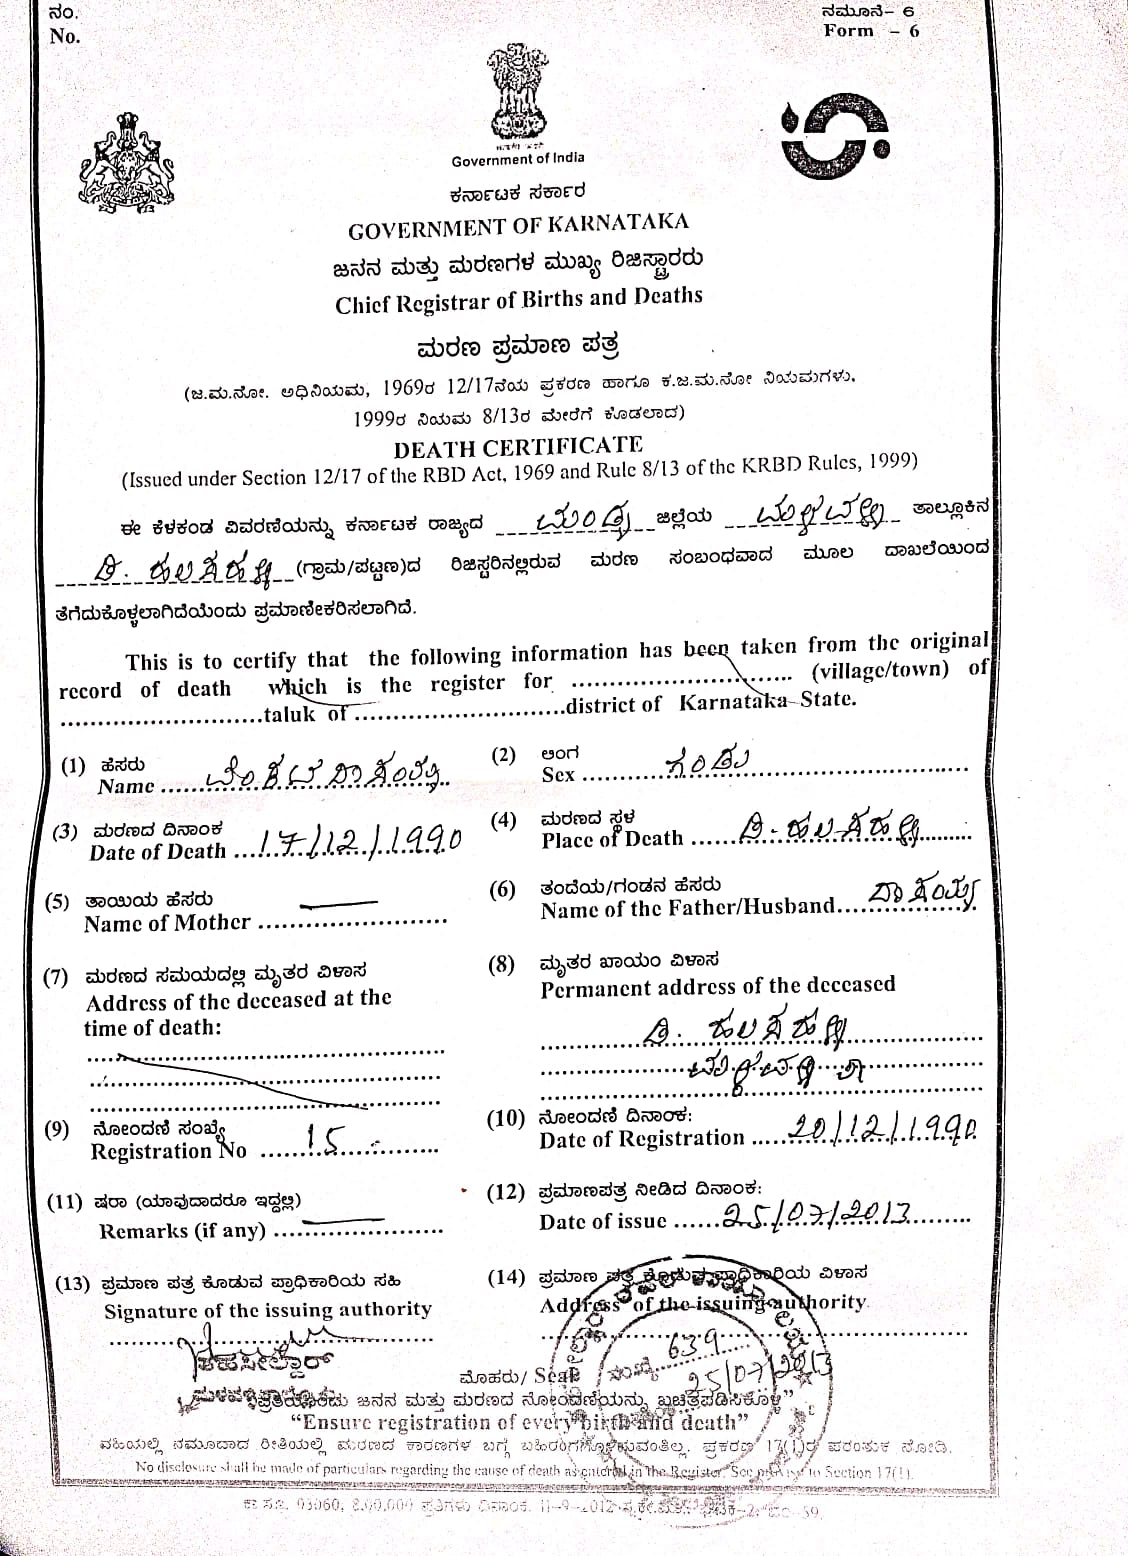 ನಂ.
No.
ನಮೂನೆ- 6
Form - 6
Government of India
ಕರ್ನಾಟಕ ಸರ್ಕಾರ
GOVERNMENT OF KARNATAKA
ಜನನ ಮತ್ತು ಮರಣಗಳ ಮುಖ್ಯ ರಿಜಿಸ್ಟ್ರಾರರು
Chief Registrar of Births and Deaths
ಮರಣ ಪ್ರಮಾಣ ಪತ್ರ
(ಜ.ಮ.ನೋ. ಅಧಿನಿಯಮ, 1969ರ 12/17ನೆಯ ಪ್ರಕರಣ ಹಾಗೂ ಕ.ಜ.ಮ.ನೋ ನಿಯಮಗಳು,
1999ರ ನಿಯಮ 8/13ರ ಮೇರೆಗೆ ಕೊಡಲಾದ)
DEATH CERTIFICATE
(Issued under Section 12/17 of the RBD Act, 1969 and Rule 8/13 of the KRBD Rules, 1999)
ಈ ಕೆಳಕಂಡ ವಿವರಣೆಯನ್ನು ಕರ್ನಾಟಕ ರಾಜ್ಯದ ಮಂಡ್ಯ ಜಿಲ್ಲೆಯ ಮಳವಳ್ಳಿ ತಾಲ್ಲೂಕಿನ
ಡಿ. ಹಲಸಹಳ್ಳಿ (ಗ್ರಾಮ/ಪಟ್ಟಣ)ದ ರಿಜಿಸ್ಟರಿನಲ್ಲಿರುವ ಮರಣ ಸಂಬಂಧವಾದ ಮೂಲ ದಾಖಲೆಯಿಂದ
ತೆಗೆದುಕೊಳ್ಳಲಾಗಿದೆಯೆಂದು ಪ್ರಮಾಣೀಕರಿಸಲಾಗಿದೆ.
This is to certify that the following information has been taken from the original
record of death which is the register for .......................... (village/town) of
..........................taluk of ...........................district of Karnataka State.
(1) ಹೆಸರು
Name
(2) ಲಿಂಗ
Sex ಗಂಡು
(3) ಮರಣದ ದಿನಾಂಕ
Date of Death 17/12/1990
(4) ಮರಣದ ಸ್ಥಳ
Place of Death ಡಿ. ಹಲಸಹಳ್ಳಿ
(5) ತಾಯಿಯ ಹೆಸರು
Name of Mother —
(6) ತಂದೆಯ/ಗಂಡನ ಹೆಸರು
Name of the Father/Husband
(7) ಮರಣದ ಸಮಯದಲ್ಲಿ ಮೃತರ ವಿಳಾಸ
Address of the deceased at the
time of death:
(8) ಮೃತರ ಖಾಯಂ ವಿಳಾಸ
Permanent address of the deceased
ಡಿ. ಹಲಸಹಳ್ಳಿ
ಮಳವಳ್ಳಿ ತಾ
(9) ನೋಂದಣಿ ಸಂಖ್ಯೆ
Registration No 15
(10) ನೋಂದಣಿ ದಿನಾಂಕ:
Date of Registration 20/12/1990
(11) ಷರಾ (ಯಾವುದಾದರೂ ಇದ್ದಲ್ಲಿ)
Remarks (if any) —
(12) ಪ್ರಮಾಣಪತ್ರ ನೀಡಿದ ದಿನಾಂಕ:
Date of issue 25/07/2013
(13) ಪ್ರಮಾಣ ಪತ್ರ ಕೊಡುವ ಪ್ರಾಧಿಕಾರಿಯ ಸಹಿ
Signature of the issuing authority
(14) ಪ್ರಮಾಣ ಪತ್ರ ಕೊಡುವ ಪ್ರಾಧಿಕಾರಿಯ ವಿಳಾಸ
Address of the issuing authority
ತಹಸೀಲ್ದಾರ್
ಮೊಹರು/ Seal
ಸಂಖ್ಯೆ 639
25/07/2013
ಜನನ ಮತ್ತು ಮರಣದ ನೋಂದಣಿಯನ್ನು ಖಚಿತಪಡಿಸಿಕೊಳ್ಳಿ”
“Ensure registration of every birth and death”
ವಹಿಯಲ್ಲಿ ನಮೂದಾದ ರೀತಿಯಲ್ಲಿ ಮರಣದ ಕಾರಣಗಳ ಬಗ್ಗೆ ಬಹಿರಂಗಗೊಳಿಸುವಂತಿಲ್ಲ. ಪ್ರಕರಣ 17(1)ರ ಪರಂತುಕ ನೋಡಿ.
No disclosure shall be made of particulars regarding the cause of death as entered in the Register. See proviso to Section 17(1).